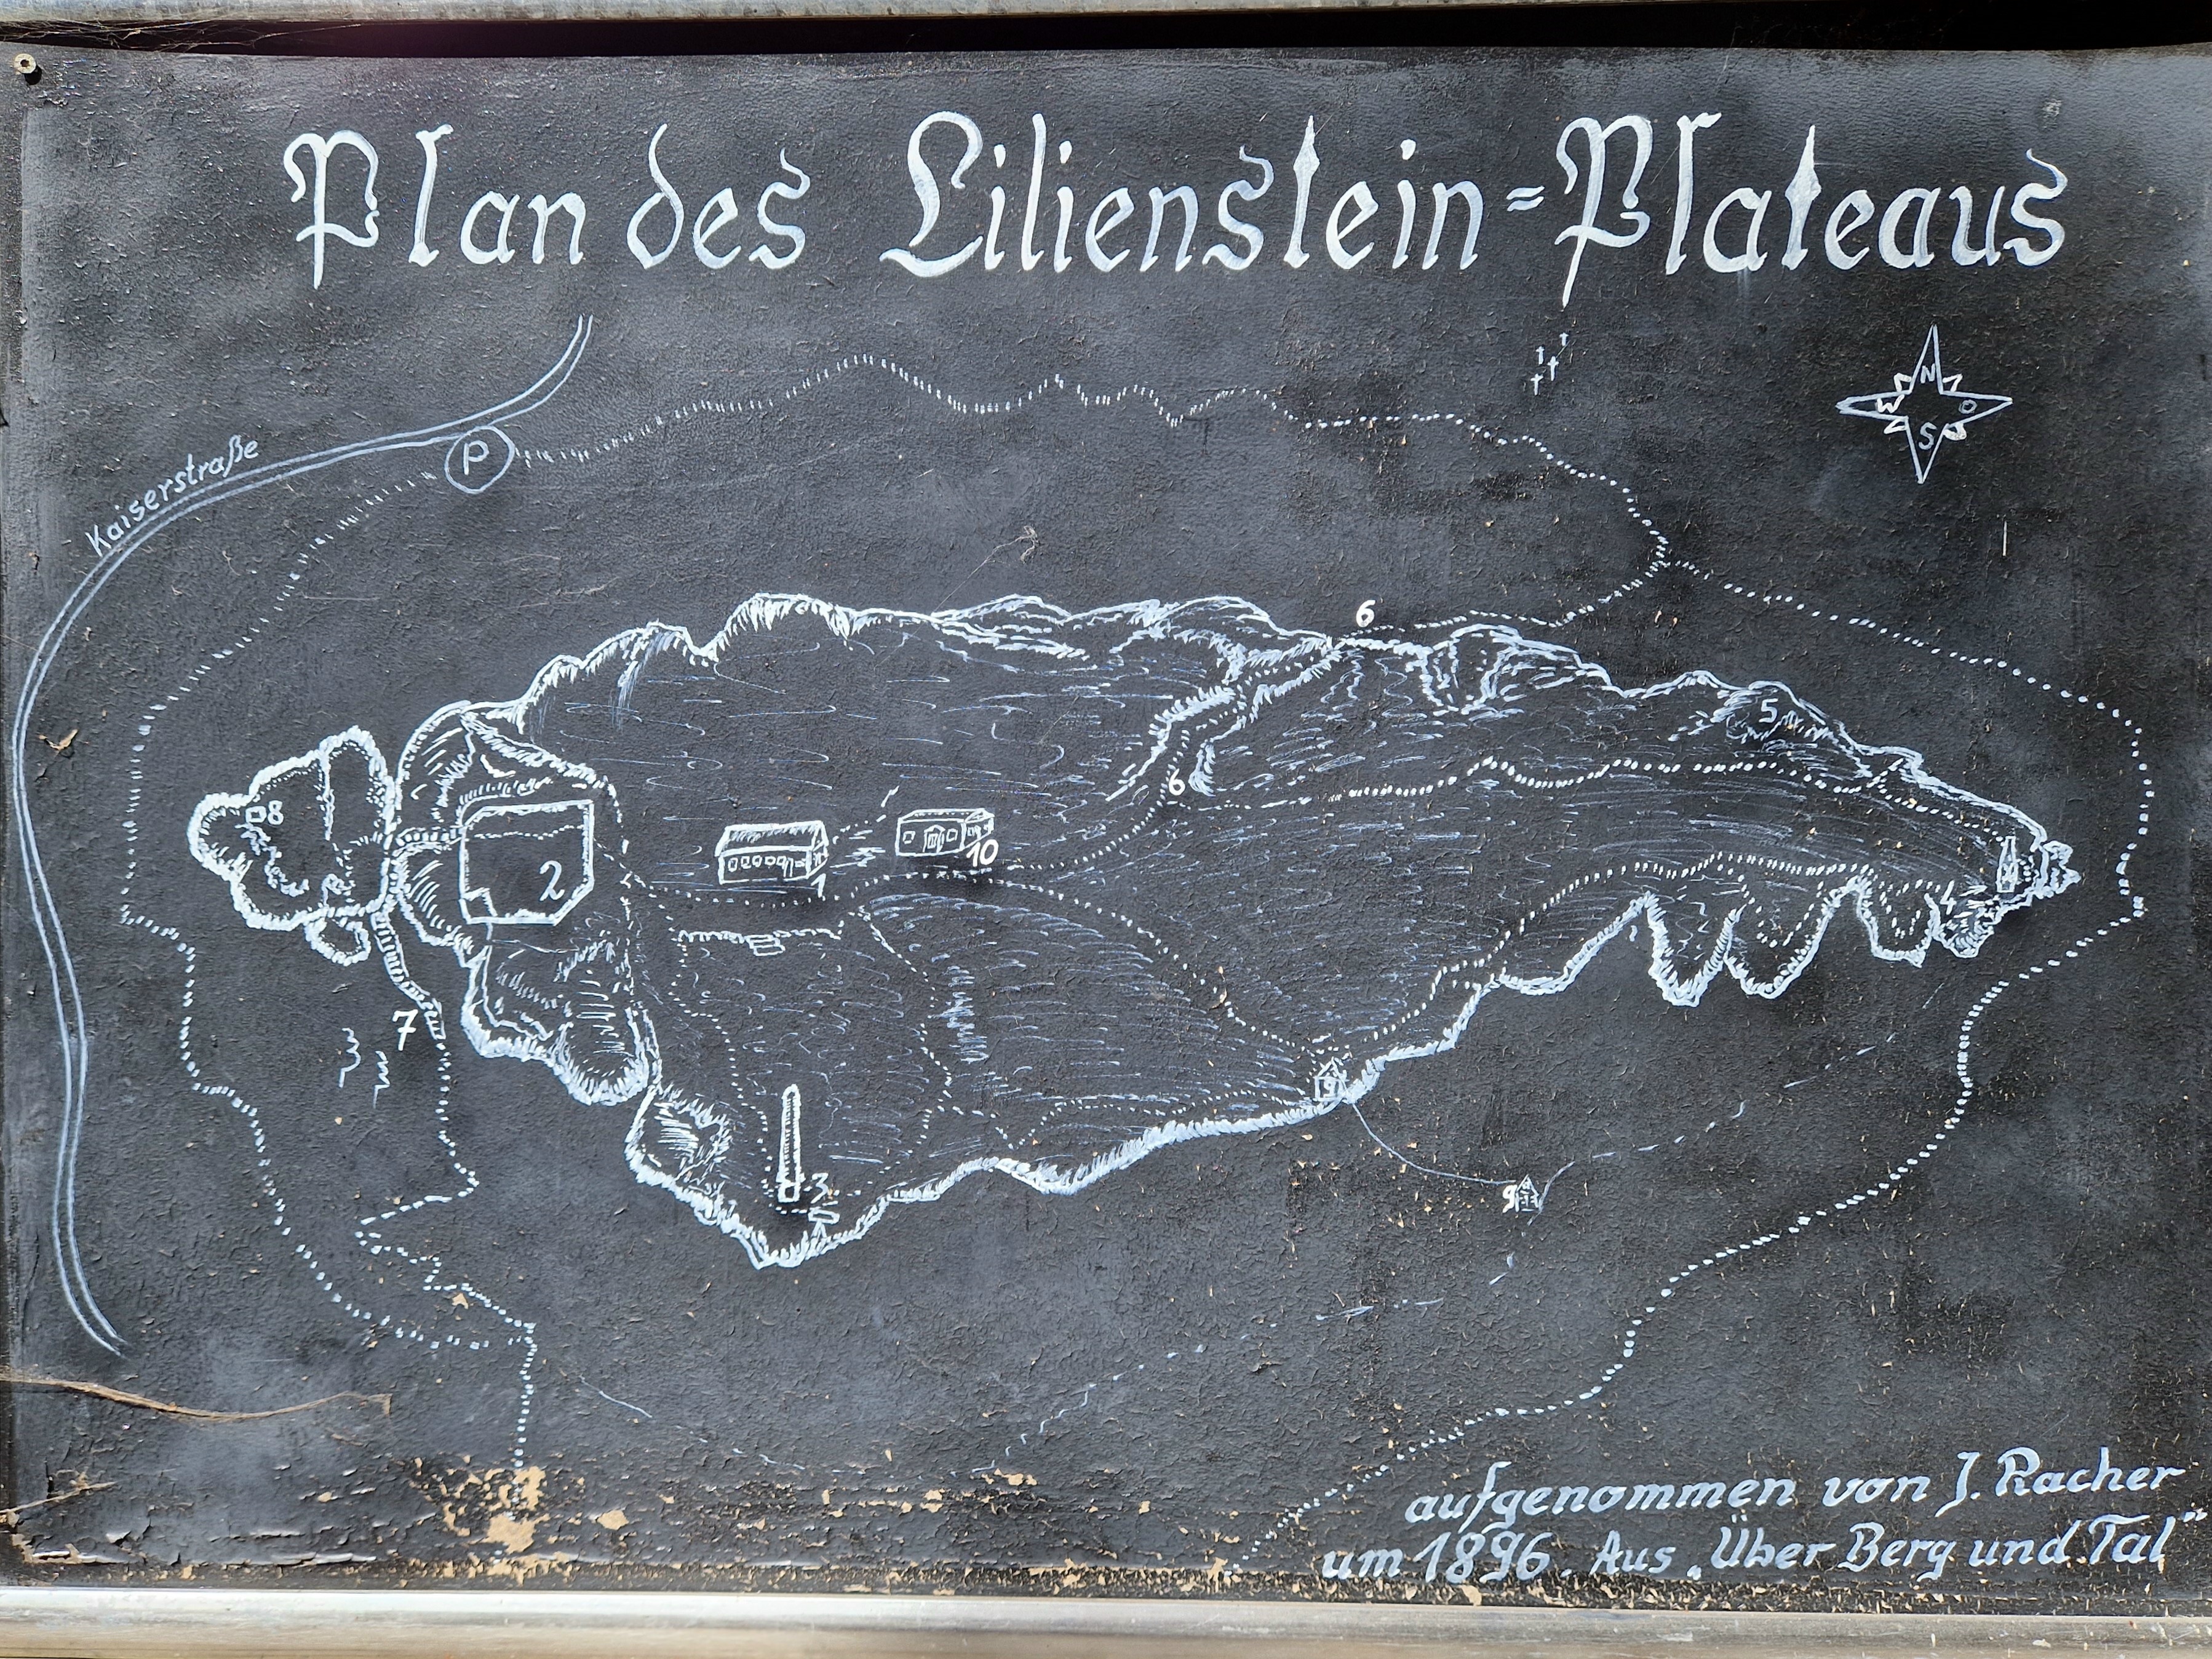 Plan des Lilienstein=Plateaus
N
W O
S
Kaiserstraße
P
6
5
6
8
2
1
10
4
7
3
9
9
aufgenommen von J. Racher
um 1896. Aus „Über Berg und Tal"